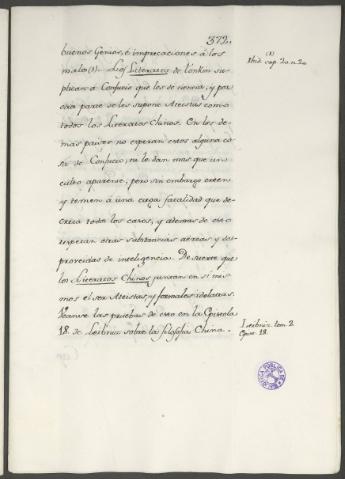 372.
buenos Genios, é imprecaciones á los
malos (1). Los Literatos de Tonkin su-
plican á Confucio que les dé ciencia; y por
esta parte se les supone Ateistas como
todos los Literatos Chinos. En los de-
mas paises no esperan estos alguna co-
sa de Confucio, ni le dan mas que un
culto aparente; pero sin embargo creen
y temen á una ciega fatalidad que de-
creta todas las cosas, y ademas de esto
respetan otras substancias aéreas y des-
proveidas de inteligencia. De suerte que
los Literatos Chinos juntan en sí mis-
mos el ser Ateistas, y formales idolatras.
Veanse las pruebas de esto en la Epistola
18. de Leibniz sobre la filosofia China.
(1)
Ibid. cap. 2. n. 2.
Leibniz. tom. 2
Epist. 18.